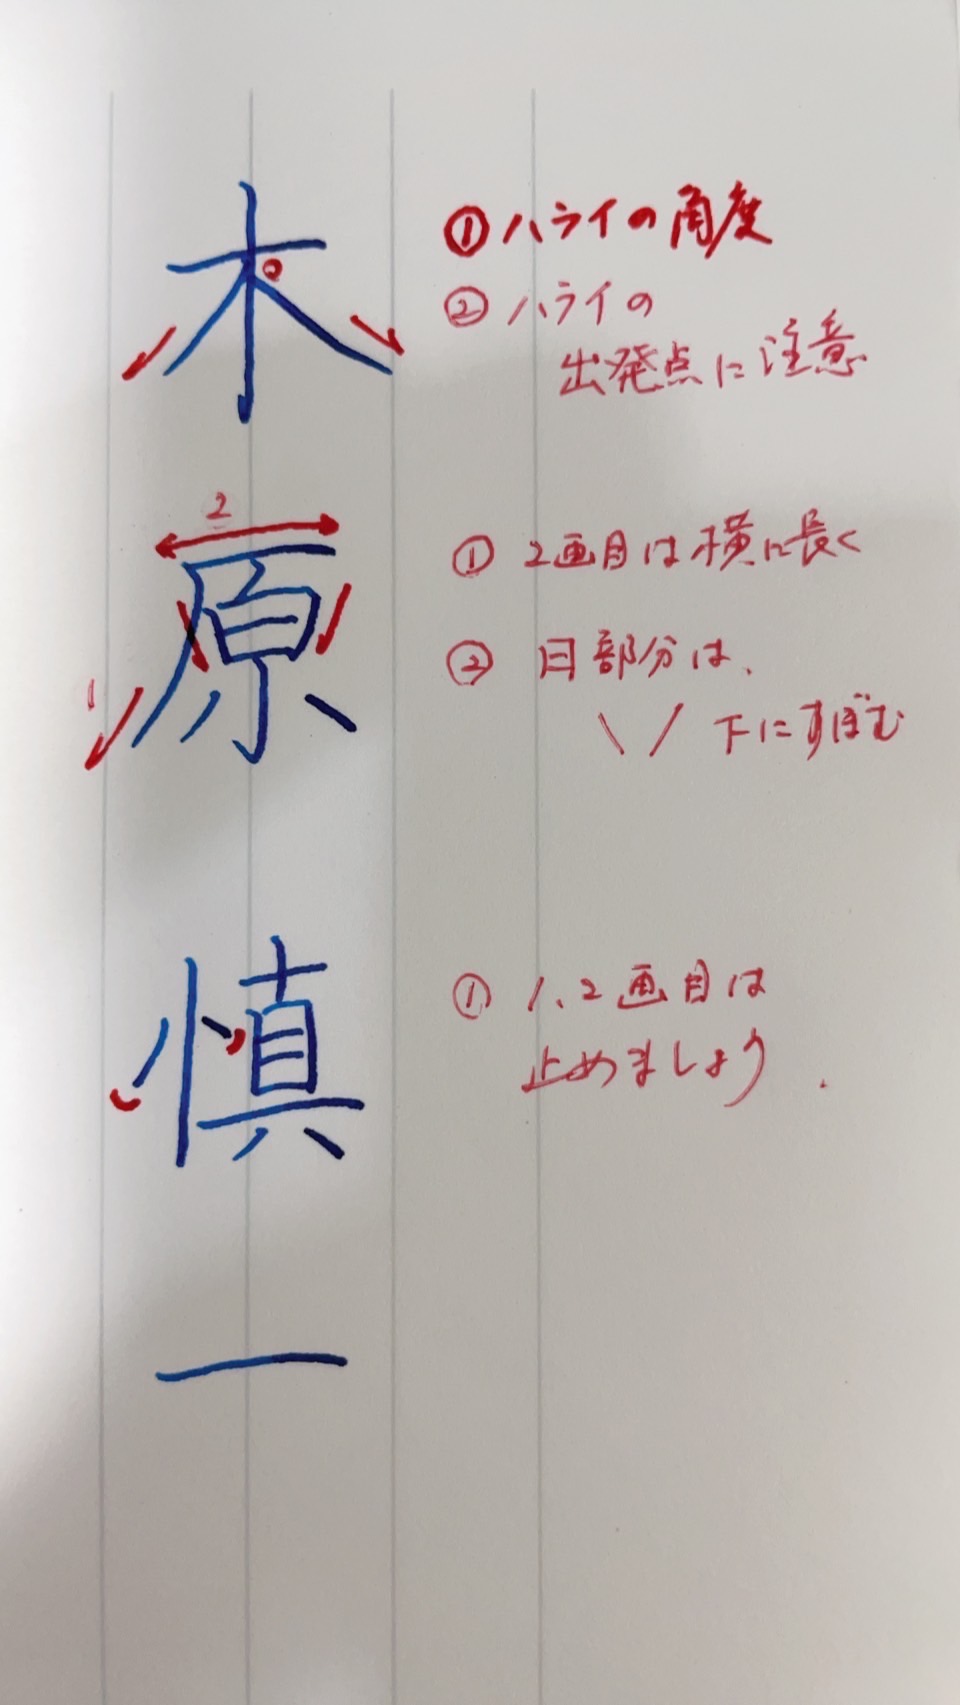 木原慎一
①ハライの角度
②ハライの
出発点に注意
2
1
①2画目は横に長く
②日部分は、
\ / 下にすぼむ
①1、2画目は
止めましょう.